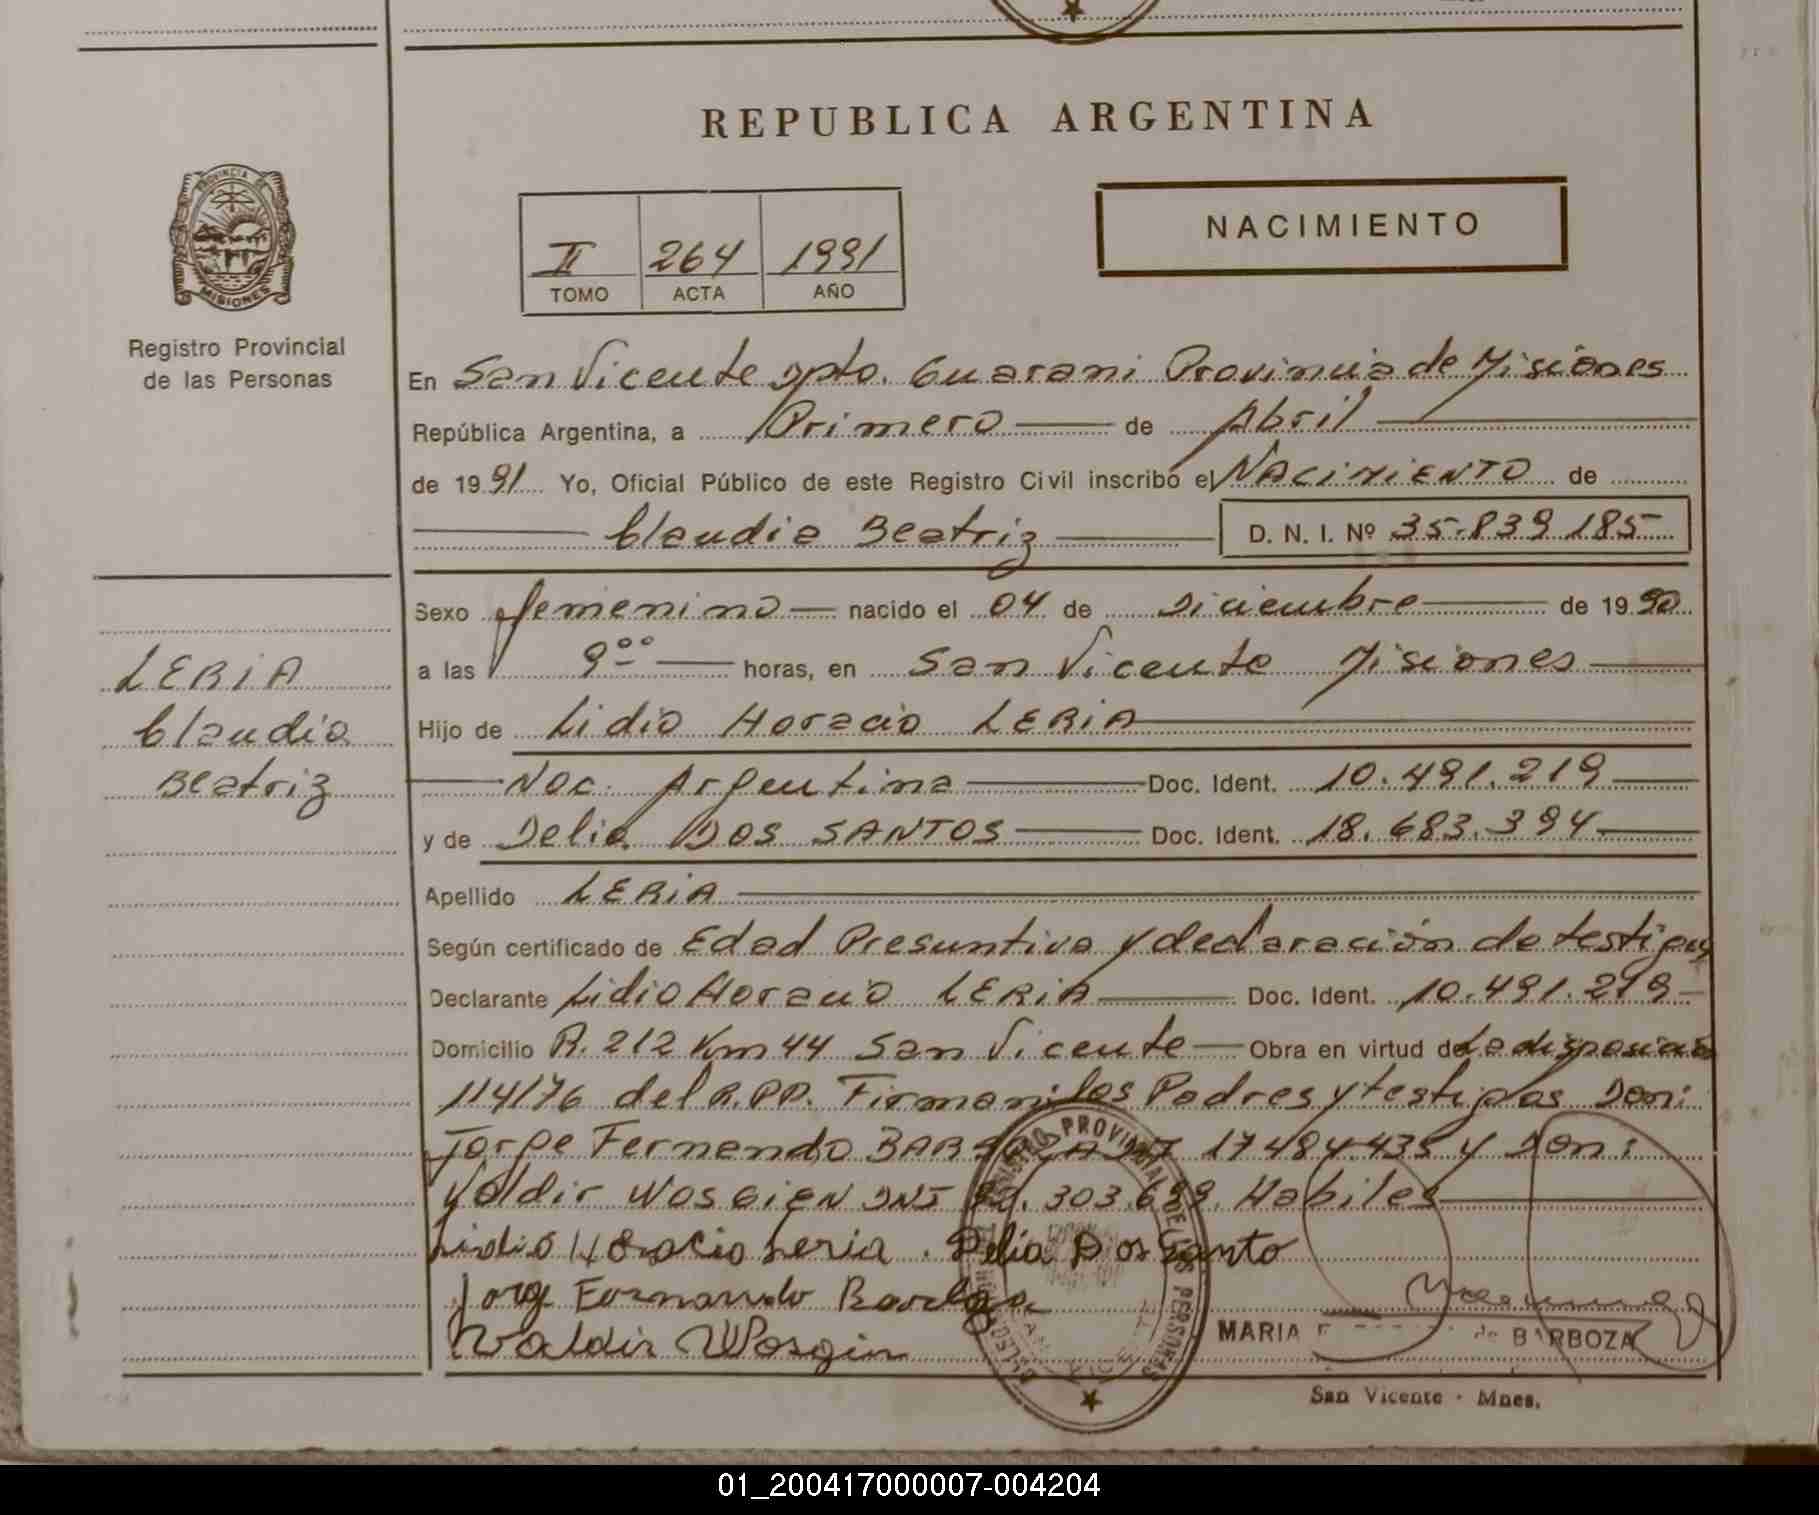 REPUBLICA ARGENTINA
PROVINCIA DE
MISIONES
Registro Provincial
de las Personas
II 264 1991
TOMO ACTA AÑO
NACIMIENTO
En San Vicente Dpto. Guarani Provincia de Misiones
República Argentina, a Primero de Abril
de 1991 Yo, Oficial Público de este Registro Civil inscribo el NACIMIENTO de
Claudia Beatriz D. N. I. Nº 35.839.185
Sexo femenino nacido el 04 de Diciembre de 1990
a las 9°° horas, en San Vicente Misiones
Hijo de Lidio Horacio LERIA
Nac. Argentina Doc. Ident. 10.491.219
y de Delia DOS SANTOS Doc. Ident. 18.683.394
Apellido LERIA
Según certificado de Edad Presuntiva y declaración de testigos
Declarante Lidio Horacio LERIA Doc. Ident. 10.491.219
Domicilio R. 212 Km 44 San Vicente Obra en virtud de La disposición
114/76 del R.P.P. Firman los Padres y testigos Don:
Jorge Fernando 17.484.435 y Don:
Valdir WOSGIEN DNI 303.699 Habiles
Lidio Horacio Leria. Delia Dos Santo
Jorge Fernando
Valdir Wosgin
LERIA
Claudia
Beatriz
REGISTRO PROVINCIAL DE LAS PERSONAS
MARIA de BARBOZA
San Vicente - Mnes.
01_200417000007-004204